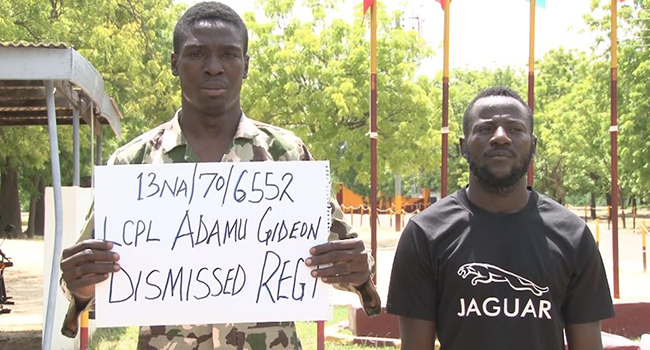 13NA/70/6552
LCPL ADAMU GIDEON
DISMISSED REGT
JAGUAR